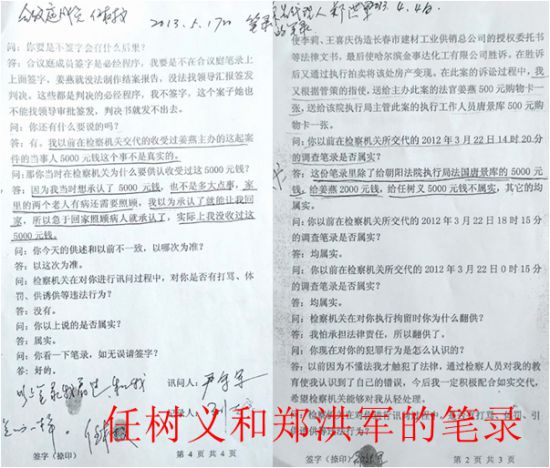 合议庭成员 任树义
2013.5.17
笔录
问：你要是不签字会有什么后果？
答：合议庭成员签字是必经程序，我要是不在合议庭笔录上
上面签字，姜燕就没法制作结案报告，没法找领导汇报签发
判决，这些都是判决的必经程序，我不签字，这个案子她也
不能找领导审批签发，判决书就发不出去。
问：你还有什么要说的吗？
答：有。我以前在检察机关交代的收受过姜燕主办的这起案
件的当事人5000元钱这个事不是真实的。
问：那你当时在检察机关为什么要供认收受过这5000元钱？
答：因为我当时想承认了5000元钱，也不是多大点事，家
里的两个老人有病还需要照顾，我以为承认了就能让我回
家，所以急于回家照顾病人就承认了，实际上我没收过这
5000元钱。
问：你今天的供述和以前不一致，以哪次为准。
答：以这次为准。
问：检察机关在对你进行讯问过程中，对你是否有打骂、体
罚、供诱供等违法行为？
答：没有。
问：你以上说的是否属实？
答：属实。
问：你看一下笔录，如无误请签字？
答：好的。
讯问人：
签字（捺印）
第 4 页 共 4 页
郑世军
的笔录
使李莉、王喜庆伪造长春市建材工业供销总公司的授权委托书
等法律文书，最后使哈尔滨金事达化工有限公司胜诉。在胜诉
后又通过执行拍卖将该处房产变现。在此案的诉讼过程中，我
又根据管策的指使，送给主办此案的法官姜燕500元购物卡一张，
送给该院执行局主管此案的执行工作人员唐景库500元购物
卡一张。
问：你以前在检察机关所交代的2012年3月22日14时20分
的调查笔录是否属实？
答：这份笔录里除了给朝阳法院执行局法国唐景库的5000元
钱，给姜燕2000元钱，给任树义5000元钱不属实，其它的均
属实。
问：你以前在检察机关所交代的2012年3月22日18时15分
的调查笔录是否属实？
答：均属实。
问：你以前在检察机关所交代的2012年3月22日0时15分
的调查笔录是否属实？
答：均属实。
问：你以前在对你执行拘留时你为什么翻供？
答：我怕承担法律责任，所以翻供了。
问：你现在对你的犯罪行为是怎么认识的？
答：以前因为不懂法我才触犯了法律，通过检察人员对我的教
育使我认识到了自己的错误，今后我一定积极配合如实交代，
希望检察机关能够对我从轻处理。
签字（捺印）
第 2 页 共 3 页
任树义和郑洪军的笔录